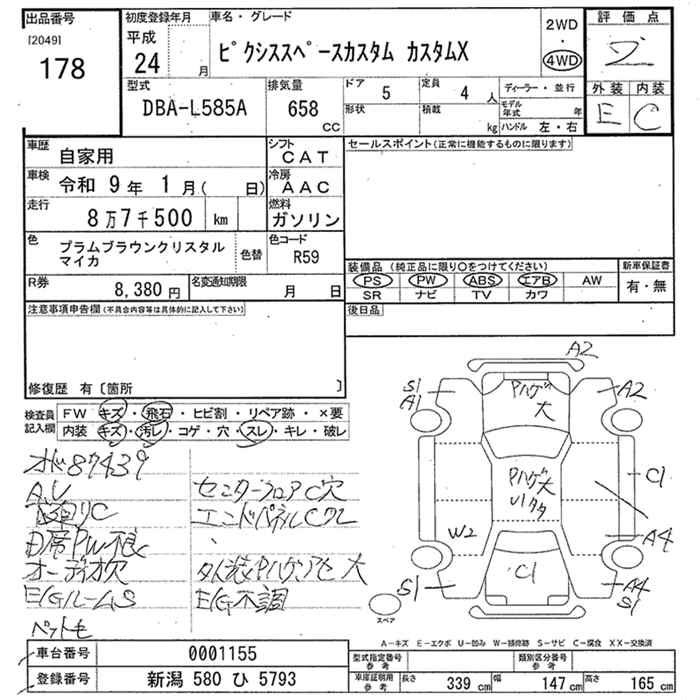 出品番号
[2049]
178
初度登録年月
平成
24 月
車名・グレード
ピクシススペースカスタム カスタムX
2WD
・
4WD
評価点
外装 内装
E C
型式
DBA-L585A
排気量
658
CC
ドア
5
定員
4 人
形状
積載
kg
ディーラー・並行
モデル年式 年
ハンドル 左・右
車歴
自家用
シフト
CAT
車検
令和 9年 1月( 日)
冷房
AAC
走行
8万7千500 km
燃料
ガソリン
色
プラムブラウンクリスタル
マイカ
色替
色コード
R59
R券
8,380 円
名変通知期限
月 日
セールスポイント(正常に機能するものに限ります)
装備品(純正品に限り○をつけてください)
PS PW ABS エアB AW
SR ナビ TV カワ
新車保証書
有・無
後日品
注意事項申告欄(不具合内容等は具体的に記入して下さい)
修復歴 有〔箇所 〕
検査員
記入欄
FW キズ・飛石・ヒビ割・リペア跡・×要
内装 キズ・汚レ・コゲ・穴・スレ・キレ・破レ
87439
A.U
下回リC
D席PW不良
オーディオ欠
E/GルームS
ペットモ
センターフロアC穴
エンドパネルCワレ
E/G不調
A2
S1
A1
Pハゲ
大
A2
C1
Pハゲ大
W2
A4
C1
S1
A4
S1
スペア
A-キズ E-エクボ U-凹み W-補修跡 S-サビ C-腐食 XX-交換済
車台番号
0001155
登録番号
新潟 580 ひ 5793
型式指定番号
参考
類別区分番号
参考
車庫証明用
参考
長さ
339 cm
幅
147 cm
高さ
165 cm